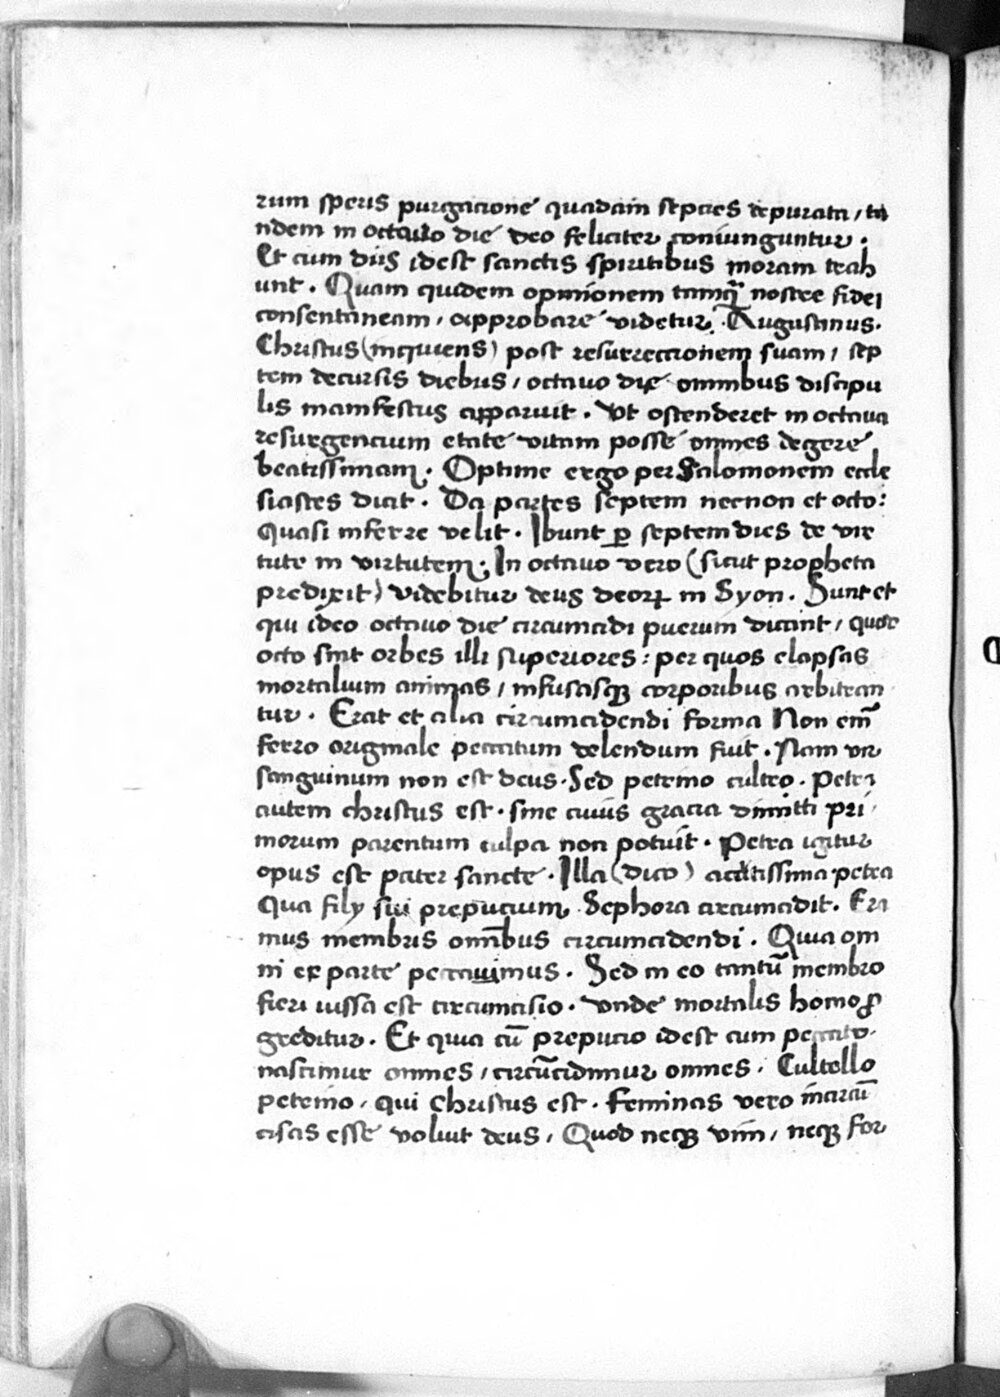 rum speris purgacione quadam septies depurata / ta
ndem in octauo die deo feliciter coniunguntur .
Et cum diis idest sanctis spiritibus moram trah
unt . Quam quidem opinionem tamq̃ nostre fidei
consentaneam , approbare videtur . Augustinus .
Christus (inquiens) post resurreccionem suam / sep
tem decursis diebus / octauo die omnibus discipu
lis manifestus apparuit . Vt ostenderet in octaua
resurgencium etate vitam posse omnes degere
beatissimam . Optime ergo per Salomonem eccle
siastes dicit . Da partes septem necnon et octo :
Quasi inferre velit . Ibunt ꝑ septem dies de vir
tute in virtutem . In octauo vero (sicut propheta
predixit) videbitur deus deoꝝ in Syon . Sunt et
qui ideo octauo die circumcidi puerum dicant / quod
octo sint orbes illi superiores : per quos elapsas
mortalium animas / infusasqꝫ corporibus arbitran
tur . Erat et alia circumcidendi forma Non em̃
ferro originale peccatum delendum fuit . Nam vir
sanguinum non est deus . Sed petrino cultro . Petra
autem christus est . sine cuius gracia dimitti pri
morum parentum culpa non potuit . Petra igitur
opus est pater sancte . Illa (dico) acutissima petra
Qua fily sui prepucium Sephora circumcidit . Era
mus membris omñibus circumcidendi . Quia om
ni ex parte peccauimus . Sed in eo tantũ membro
fieri iussa est circumcisio . vnde mortalis homo ꝓ
greditur . Et quia cũ prepucio idest cum peccato
nascimur omnes , circũcidimur omnes . Cultello
petrino , qui christus est . Feminas vero incircũ
cisas esse voluit deus , Quod neqꝫ vim , neqꝫ for